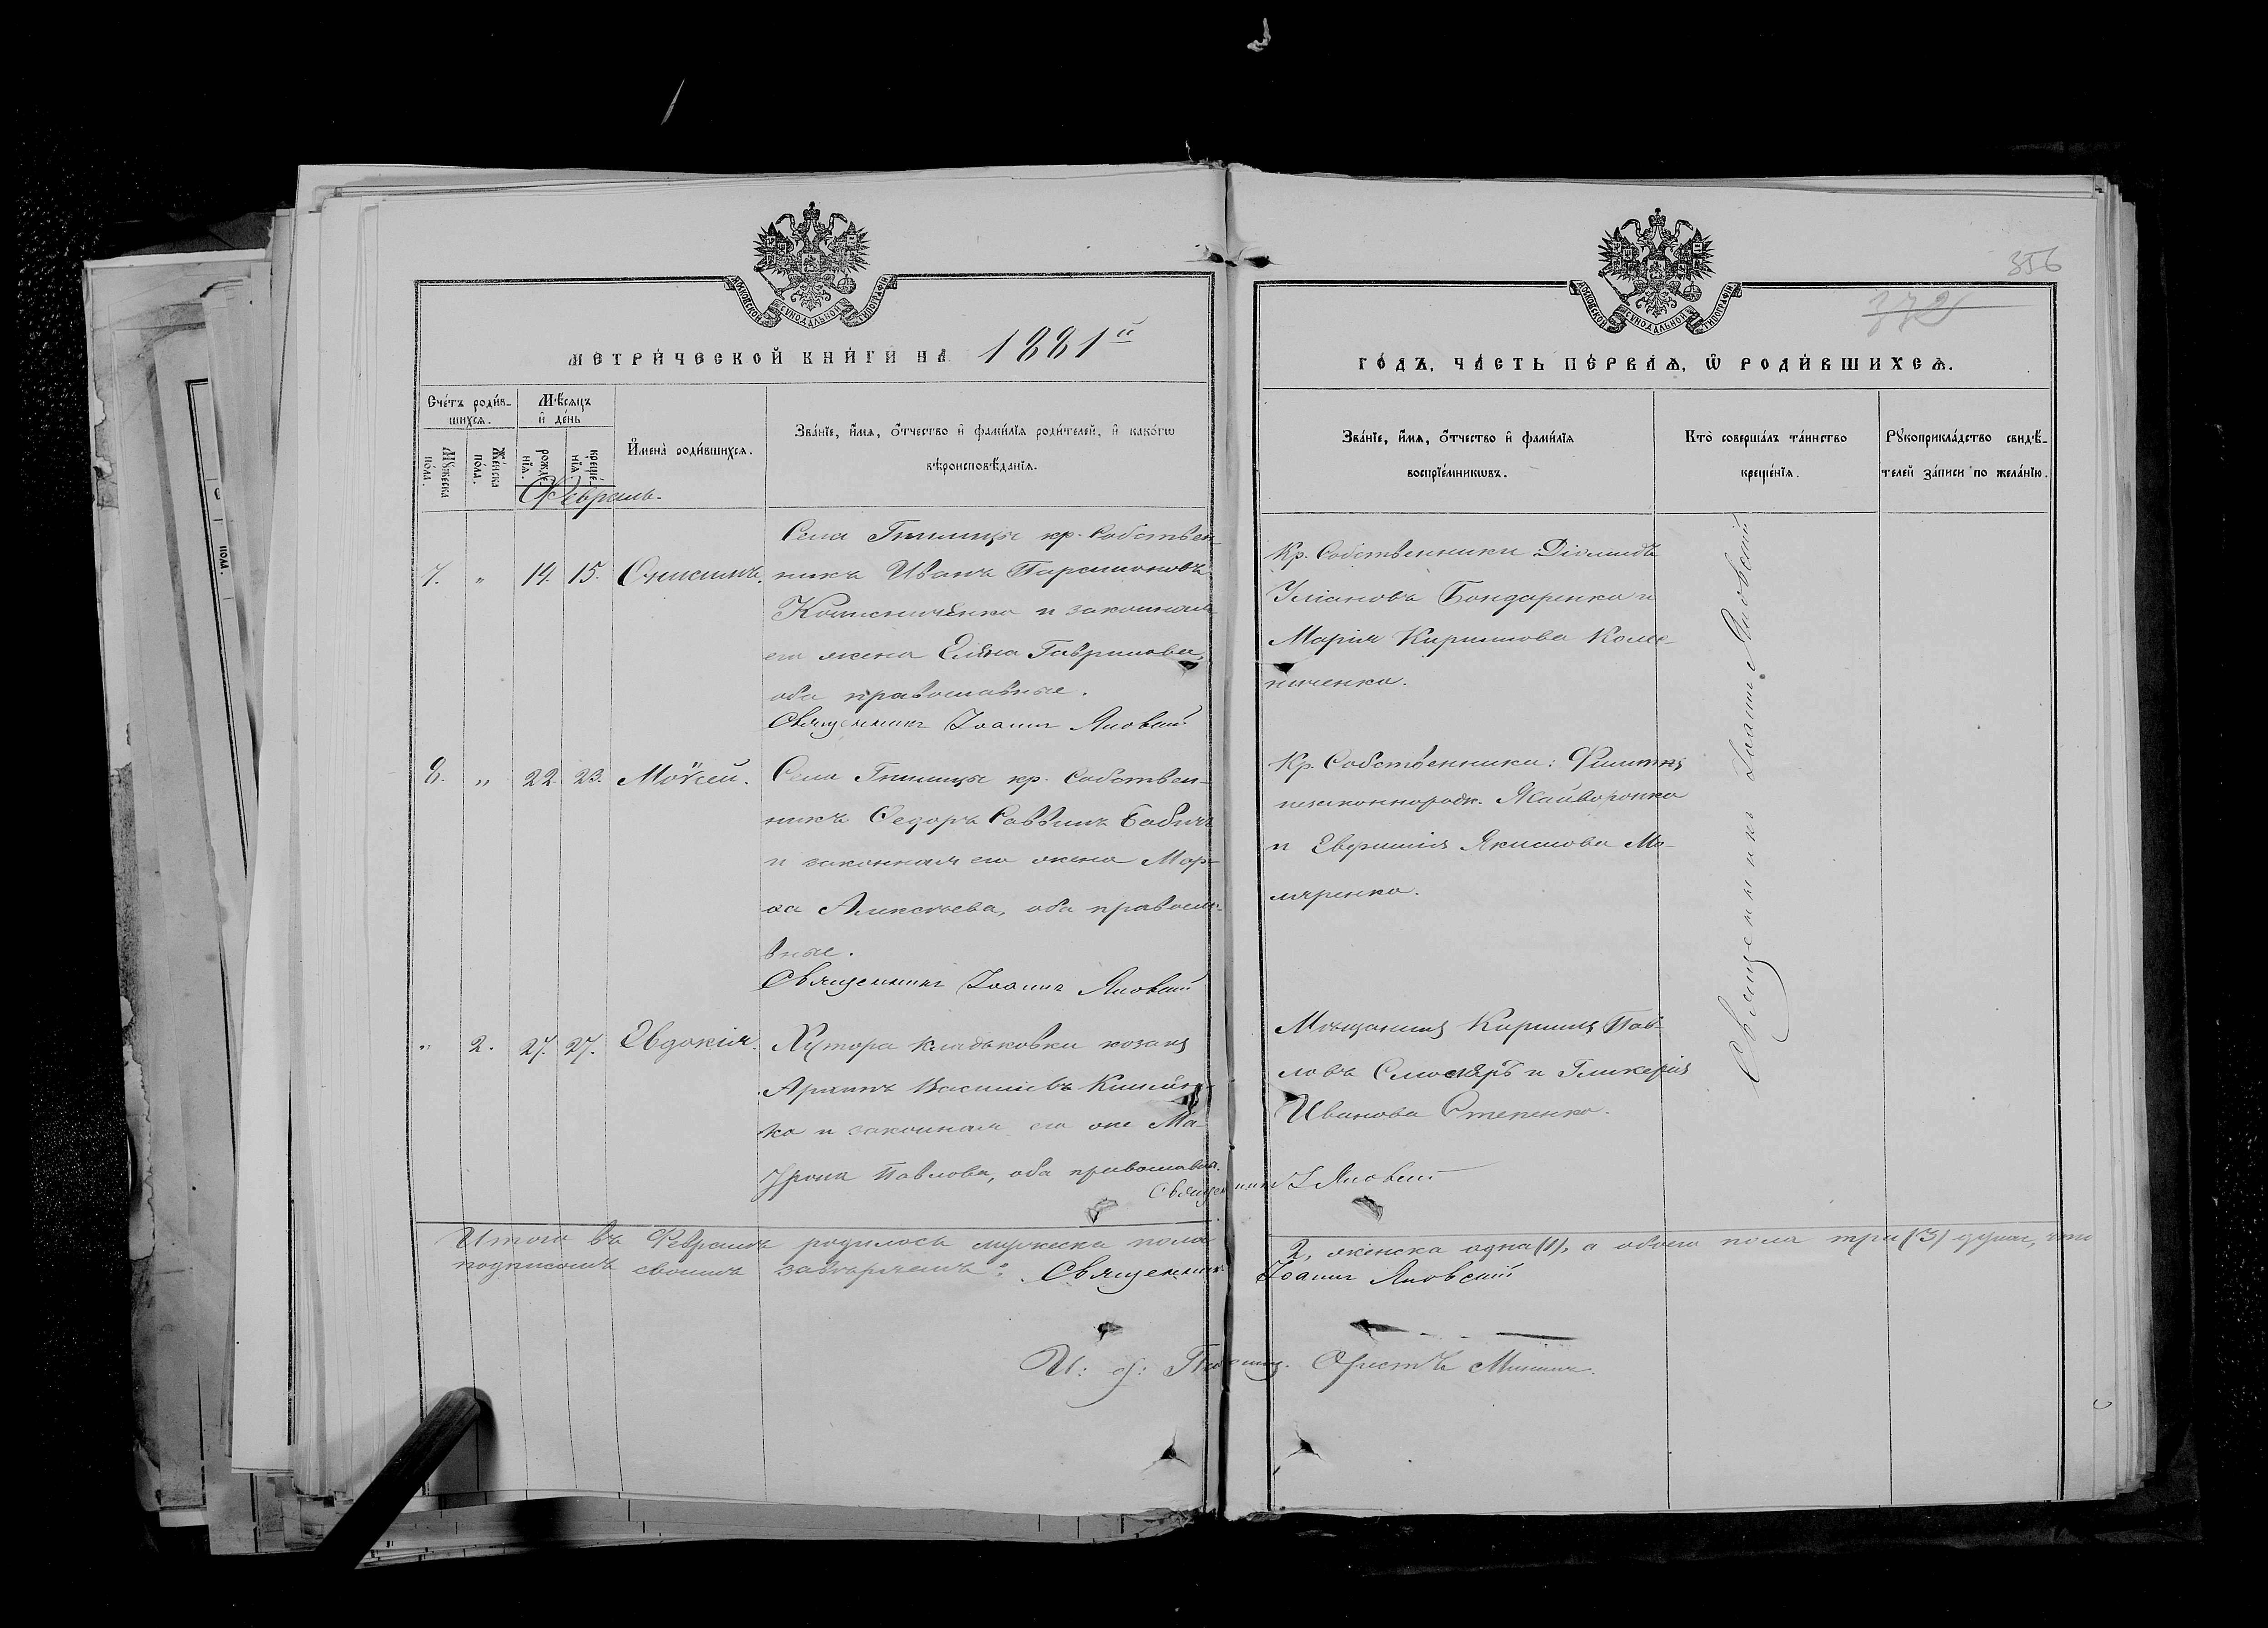 356
372
МОСКОВСКОЙ СѴНОДАЛЬНОЙ ТИПОГРАФІИ
МОСКОВСКОЙ СѴНОДАЛЬНОЙ ТИПОГРАФІИ
МЕТРИ́ЧЕСКОЙ КНИ́ГИ НА 1881й
ГО́ДЪ, ЧА́СТЬ ПЕ́РВАѦ, Ѿ РОДИ́ВШИХСѦ.
Счéтъ роди́в-
шихсѧ.
Мꙋ́жеска по́ла.
Же́нска по́ла.
Мѣ́сѧцъ
и҆ де́нь
рожде́-нїѧ.
креще́-нїѧ.
И҆мена̀ роди́вшихсѧ.
Зва́нїе, и҆́мѧ, ѻ҆́тчество и҆ фами́лїѧ роди́телей, и҆ како́гѡ
вѣроисповѣ́данїѧ.
Зва́нїе, и҆́мѧ, ѻ҆́тчество и҆ фами́лїѧ
воспрїе́мникѡвъ.
Кто̀ соверша́лъ та́инство
креще́нїѧ.
Рꙋкоприкла́дство свидѣ́-
телей за́писи по жела́нїю.
Февраль.
7. " 14. 15. Онисимъ.
Села Гнилицы кр. Собствен-
никъ Иванъ Парамоновъ
Колисниченко и законная
его жена Елена Гаврилова,
оба православные.
Священникъ Іоаннъ Яновскій
Кр. Собственники Діомидъ
Уліановъ Бондаренко и
Марія Кириллова Коли-
ниченко.
8. " 22. 23. Моѵсей.
Села Гнилицы кр. Собствен-
никъ Федоръ Саввинъ Бабичъ
и законная его жена Мар-
ѳа Алексѣева, оба правосла-
вные.
Священникъ Іоаннъ Яновскій
Кр. Собственники: Филиппъ
незаконнорожд. Жайворонко
и Евфимія Якимова Ма-
ляренко.
" 2. 27. 27. Евдокія.
Хутора Кладьковки козакъ
Архипъ Васильевъ
ко и законная его жена Ма-
трона Павлова, оба православн.
Священникъ І Яновскій
Мѣщанинъ Кириллъ Пав-
ловъ и Гликерія
Иванова Степенко.
Священникъ Іоаннъ Яновскій
Итого въ Февралѣ родилось мужеска пола 2, женска одна (1), а обоего пола три (3) души, что
подписомъ своимъ завѣряемъ: Священникъ Іоаннъ Яновскій
И: д: Псаломщ. Орестъ